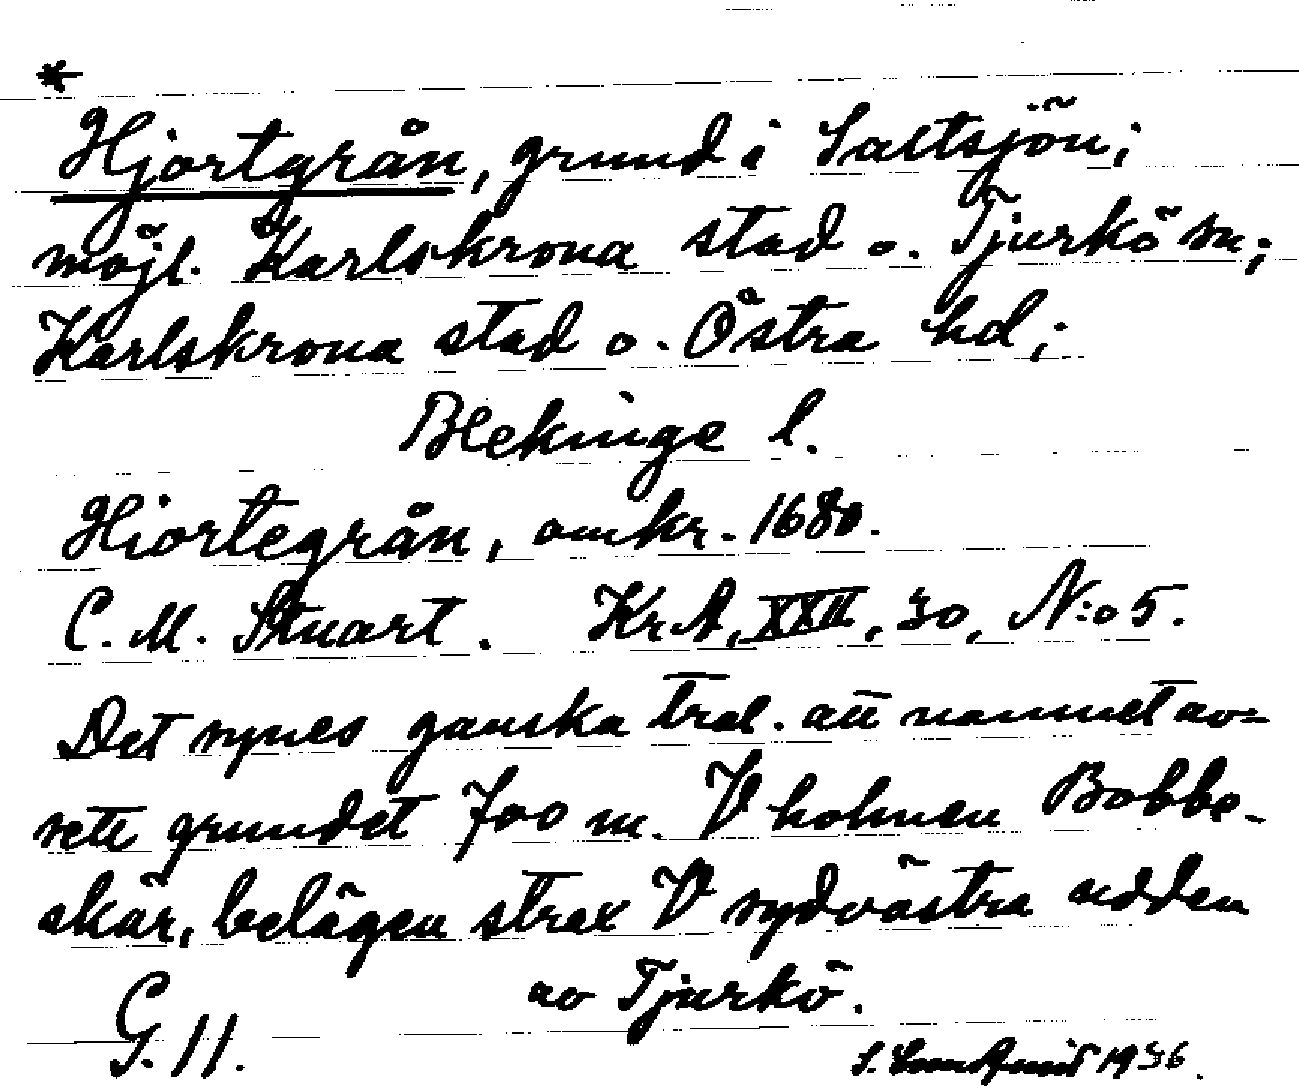 *
Hjortgrån, grund i Saltsjön;
möjl. Karlskrona stad o. Tjurkö sn;
Karlskrona stad o. Östra hd;
Blekinge l.
Hiortegrån, omkr. 1680.
C. M. Stuart. KrA, XXII, 30, N:o 5.
Det synes ganska trol. att namnet av-
sett grundet 700 m. V holmen Bobbe-
skär, belägen strax V sydvästra udden
av Tjurkö.
G. 11.
1936.